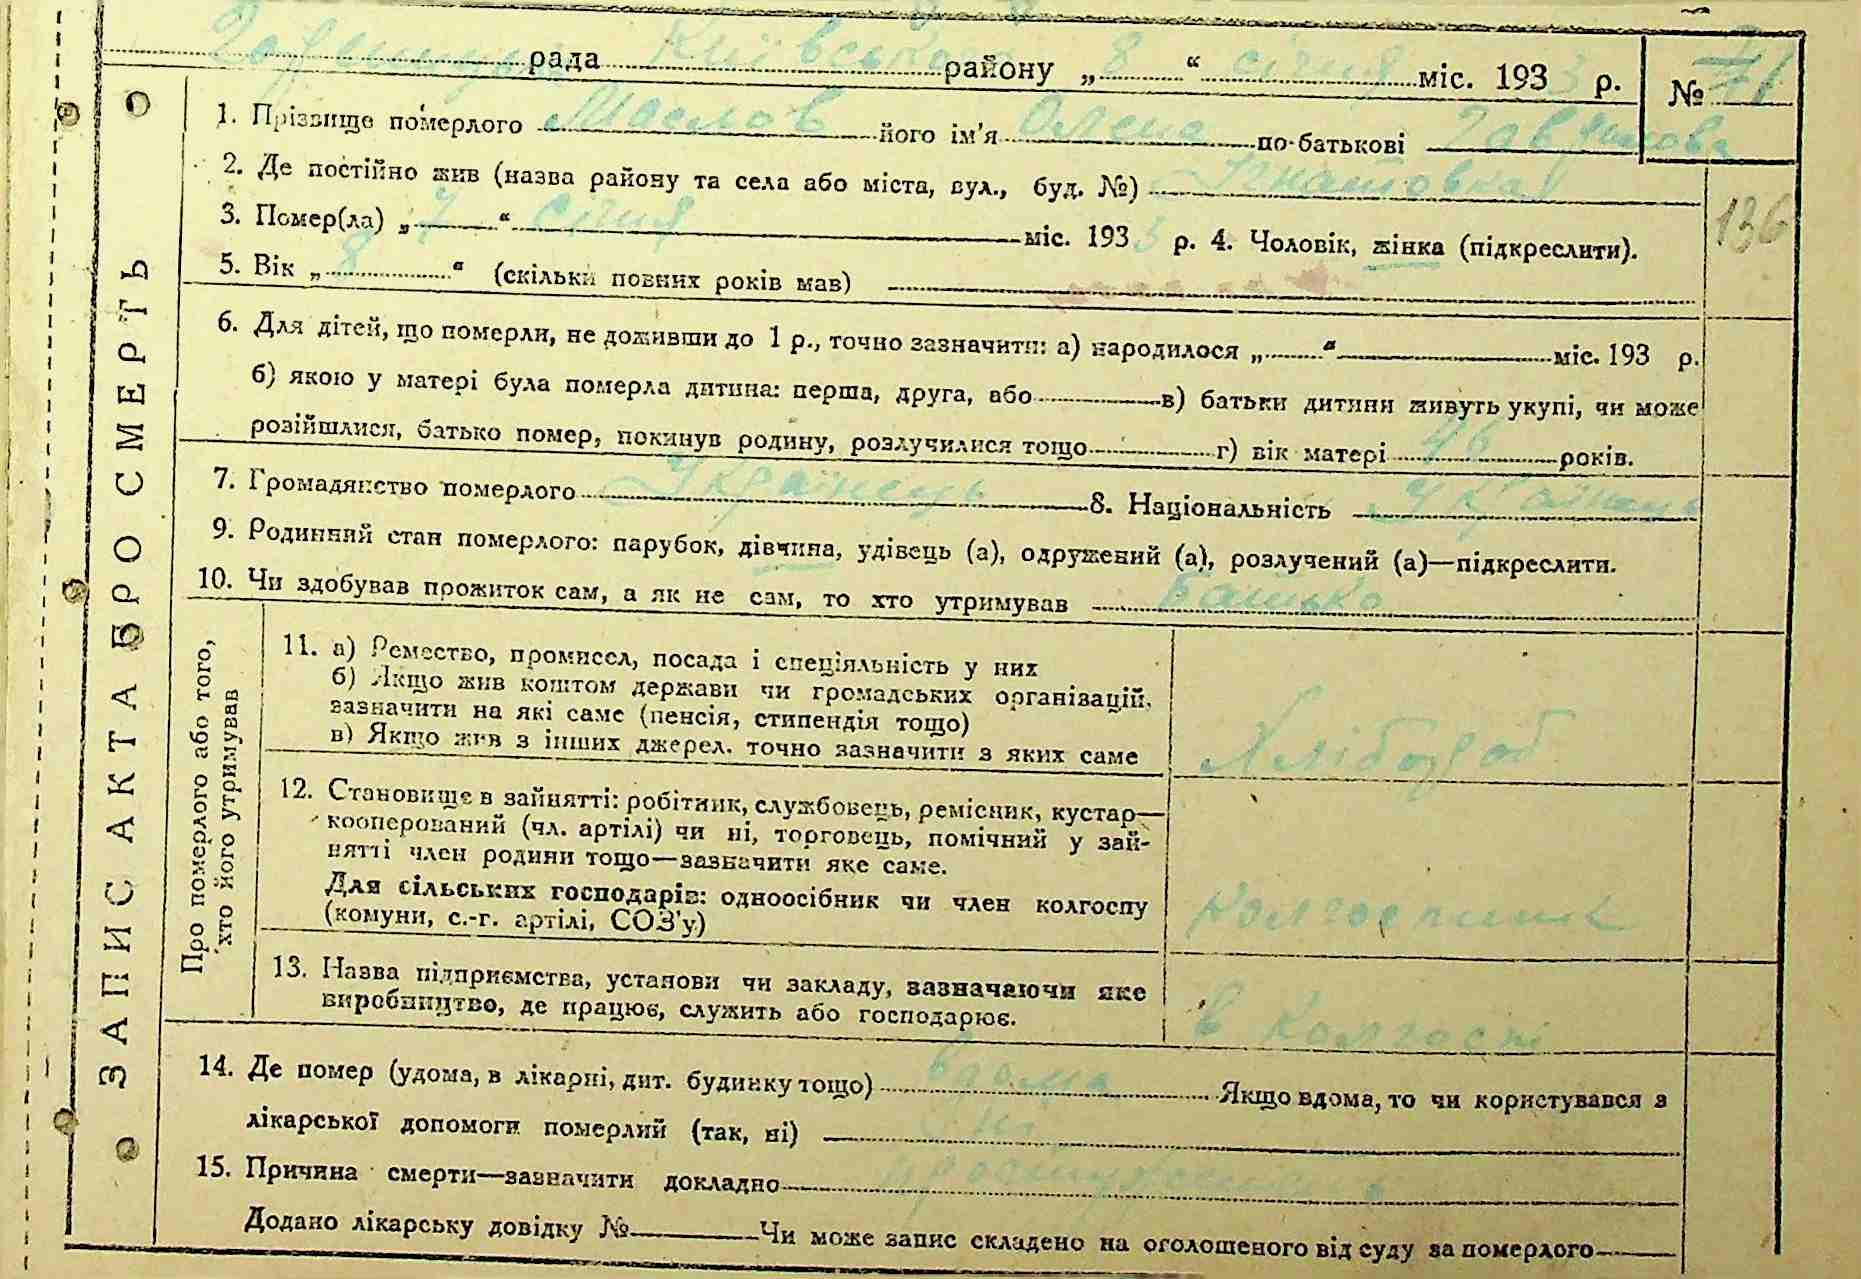 Київська 8 січня 3
рада районну „ “ міс. 193 р. №
1. Прізвище померлого Маслов його ім'я Олена по-батькові
2. Де постійно жив (назва району та села або міста, вул., буд. №) Гнатовка
3. Помер(ла) „ 7 “ січня міс. 193 3 р. 4. Чоловік, жінка (підкреслити).
136
5. Вік „ 8 “ (скільки повних років мав)
6. Для дітей, що померли, не доживши до 1 р., точно зазначити: а) народилося „ “ міс. 193 р.
б) якою у матері була померла дитина: перша, друга, або в) батьки дитини живуть укупі, чи може
розійшлися, батько помер, покинув родину, розлучилися тощо г) вік матері 46 років.
7. Громадянство померлого Українець 8. Національність Українець
9. Родинний стан померлого: парубок, дівчина, удівець (а), одружений (а), розлучений (а)—підкреслити.
10. Чи здобував прожиток сам, а як не сам, то хто утримував Батько
ЗАПИС АКТА ПРО СМЕРТЬ
Про померлого або того,
хто його утримував
11. а) Ремество, промисел, посада і спеціяльність у них
б) Якщо жив коштом держави чи громадських організацій,
зазначити на які саме (пенсія, стипендія тощо)
в) Якщо жив з інших джерел, точно зазначити з яких саме
Хлібороб
12. Становище в зайнятті: робітник, службовець, ремісник, кустар—
кооперований (чл. артілі) чи ні, торговець, помічний у зай-
нятті член родини тощо—зазначити яке саме.
Для сільських господарів: одноосібник чи член колгоспу
(комуни, с.-г. артілі, СОЗ'у)
колгоспник
13. Назва підприємства, установи чи закладу, зазначаючи яке
виробництво, де працює, служить або господарює.
в колгоспі
14. Де помер (удома, в лікарні, дит. будинку тощо) вдома Якщо вдома, то чи користувався з
лікарської допомоги померлий (так, ні) ні
15. Причина смерти—зазначити докладно
Додано лікарську довідку № Чи може запис складено на оголошеного від суду за померлого